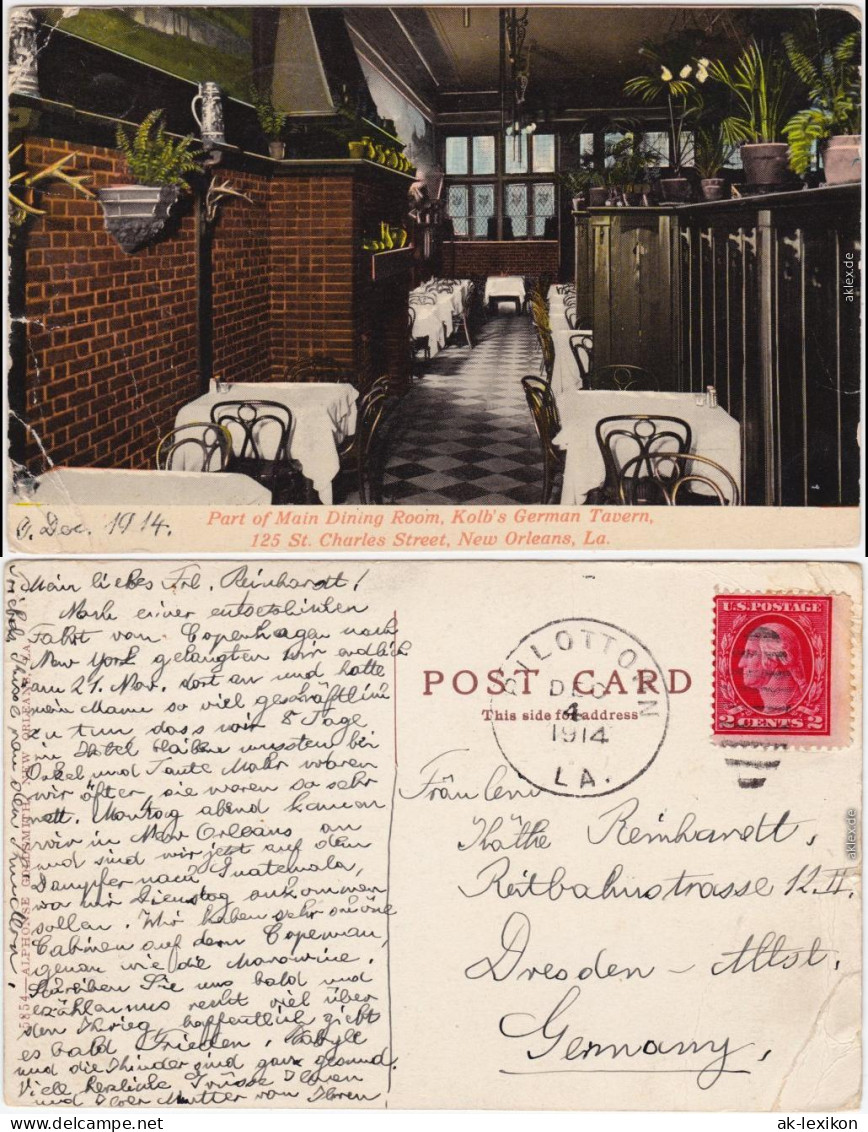 9. Dec. 1914.
Part of Main Dining Room, Kolb's German Tavern,
125 St. Charles Street, New Orleans, La.
aklex.de
Mein liebes Frl. Reinhardt!
Nach einer entsetzlichen
Fahrt von Copenhagen nach
New York gelangten wir endlich
am 21. Nov. dort an und hatte
mein Mann so viel geschäftlich
zu tun dass wir 8 Tage
im Hotel bleiben mussten bei
Onkel und Tante Mohr waren
wir öfter, sie waren so sehr
nett. Montag abend kamen
wir in New Orleans an
und sind wir jetzt auf dem
Dampfer nach Guatemala,
wo wir Dienstag ankommen
sollen. Wir haben sehr schöne
Cabinen auf dem
genau wie die
Schreiben Sie uns bald und
erzählen uns recht viel über
den Krieg, hoffentlich giebt
es bald Frieden.
und die Kinder sind ganz gesund.
Viele herzliche Grüsse Ihnen
und Ihrer Mutter von Ihren
5854—ALPHONSE GOLDSMITH, NEW ORLEANS, LA.
POST CARD
This side for address
DEC
4
1914
LA.
U.S. POSTAGE
2 CENTS 2
Fräulein
Käthe Reinhardt,
Reitbahnstrasse 12. II.
Dresden - Altst.
Germany,
aklex.de
ak-lexikon